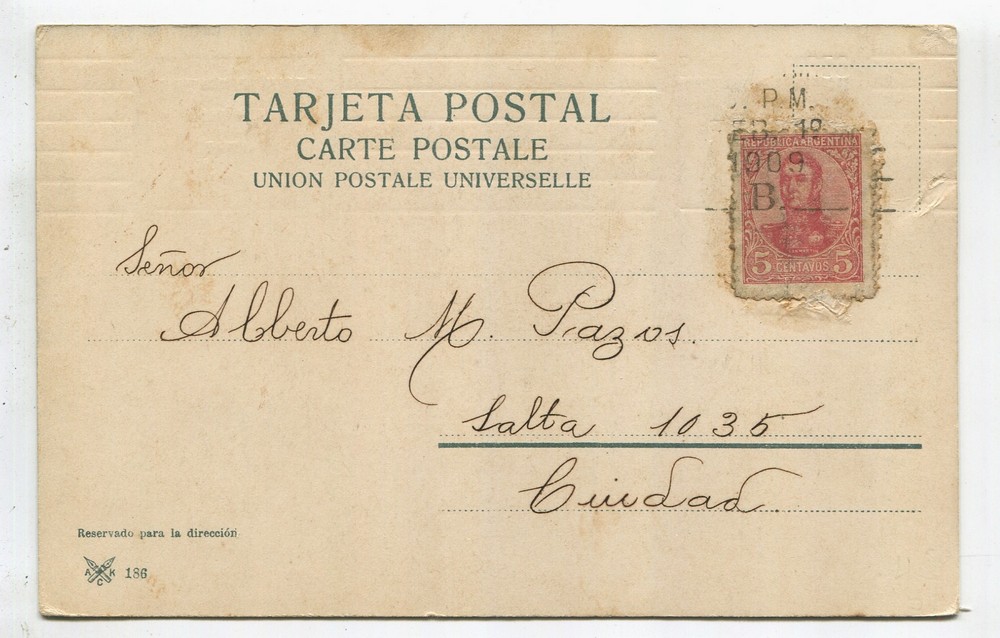 TARJETA POSTAL
CARTE POSTALE
UNION POSTALE UNIVERSELLE
P.M.
1909
B.
REPUBLICA ARGENTINA
5 CENTAVOS 5
Señor
Alberto M. Pazos.
Salta 1035
Ciudad.
Reservado para la dirección
A K C 186